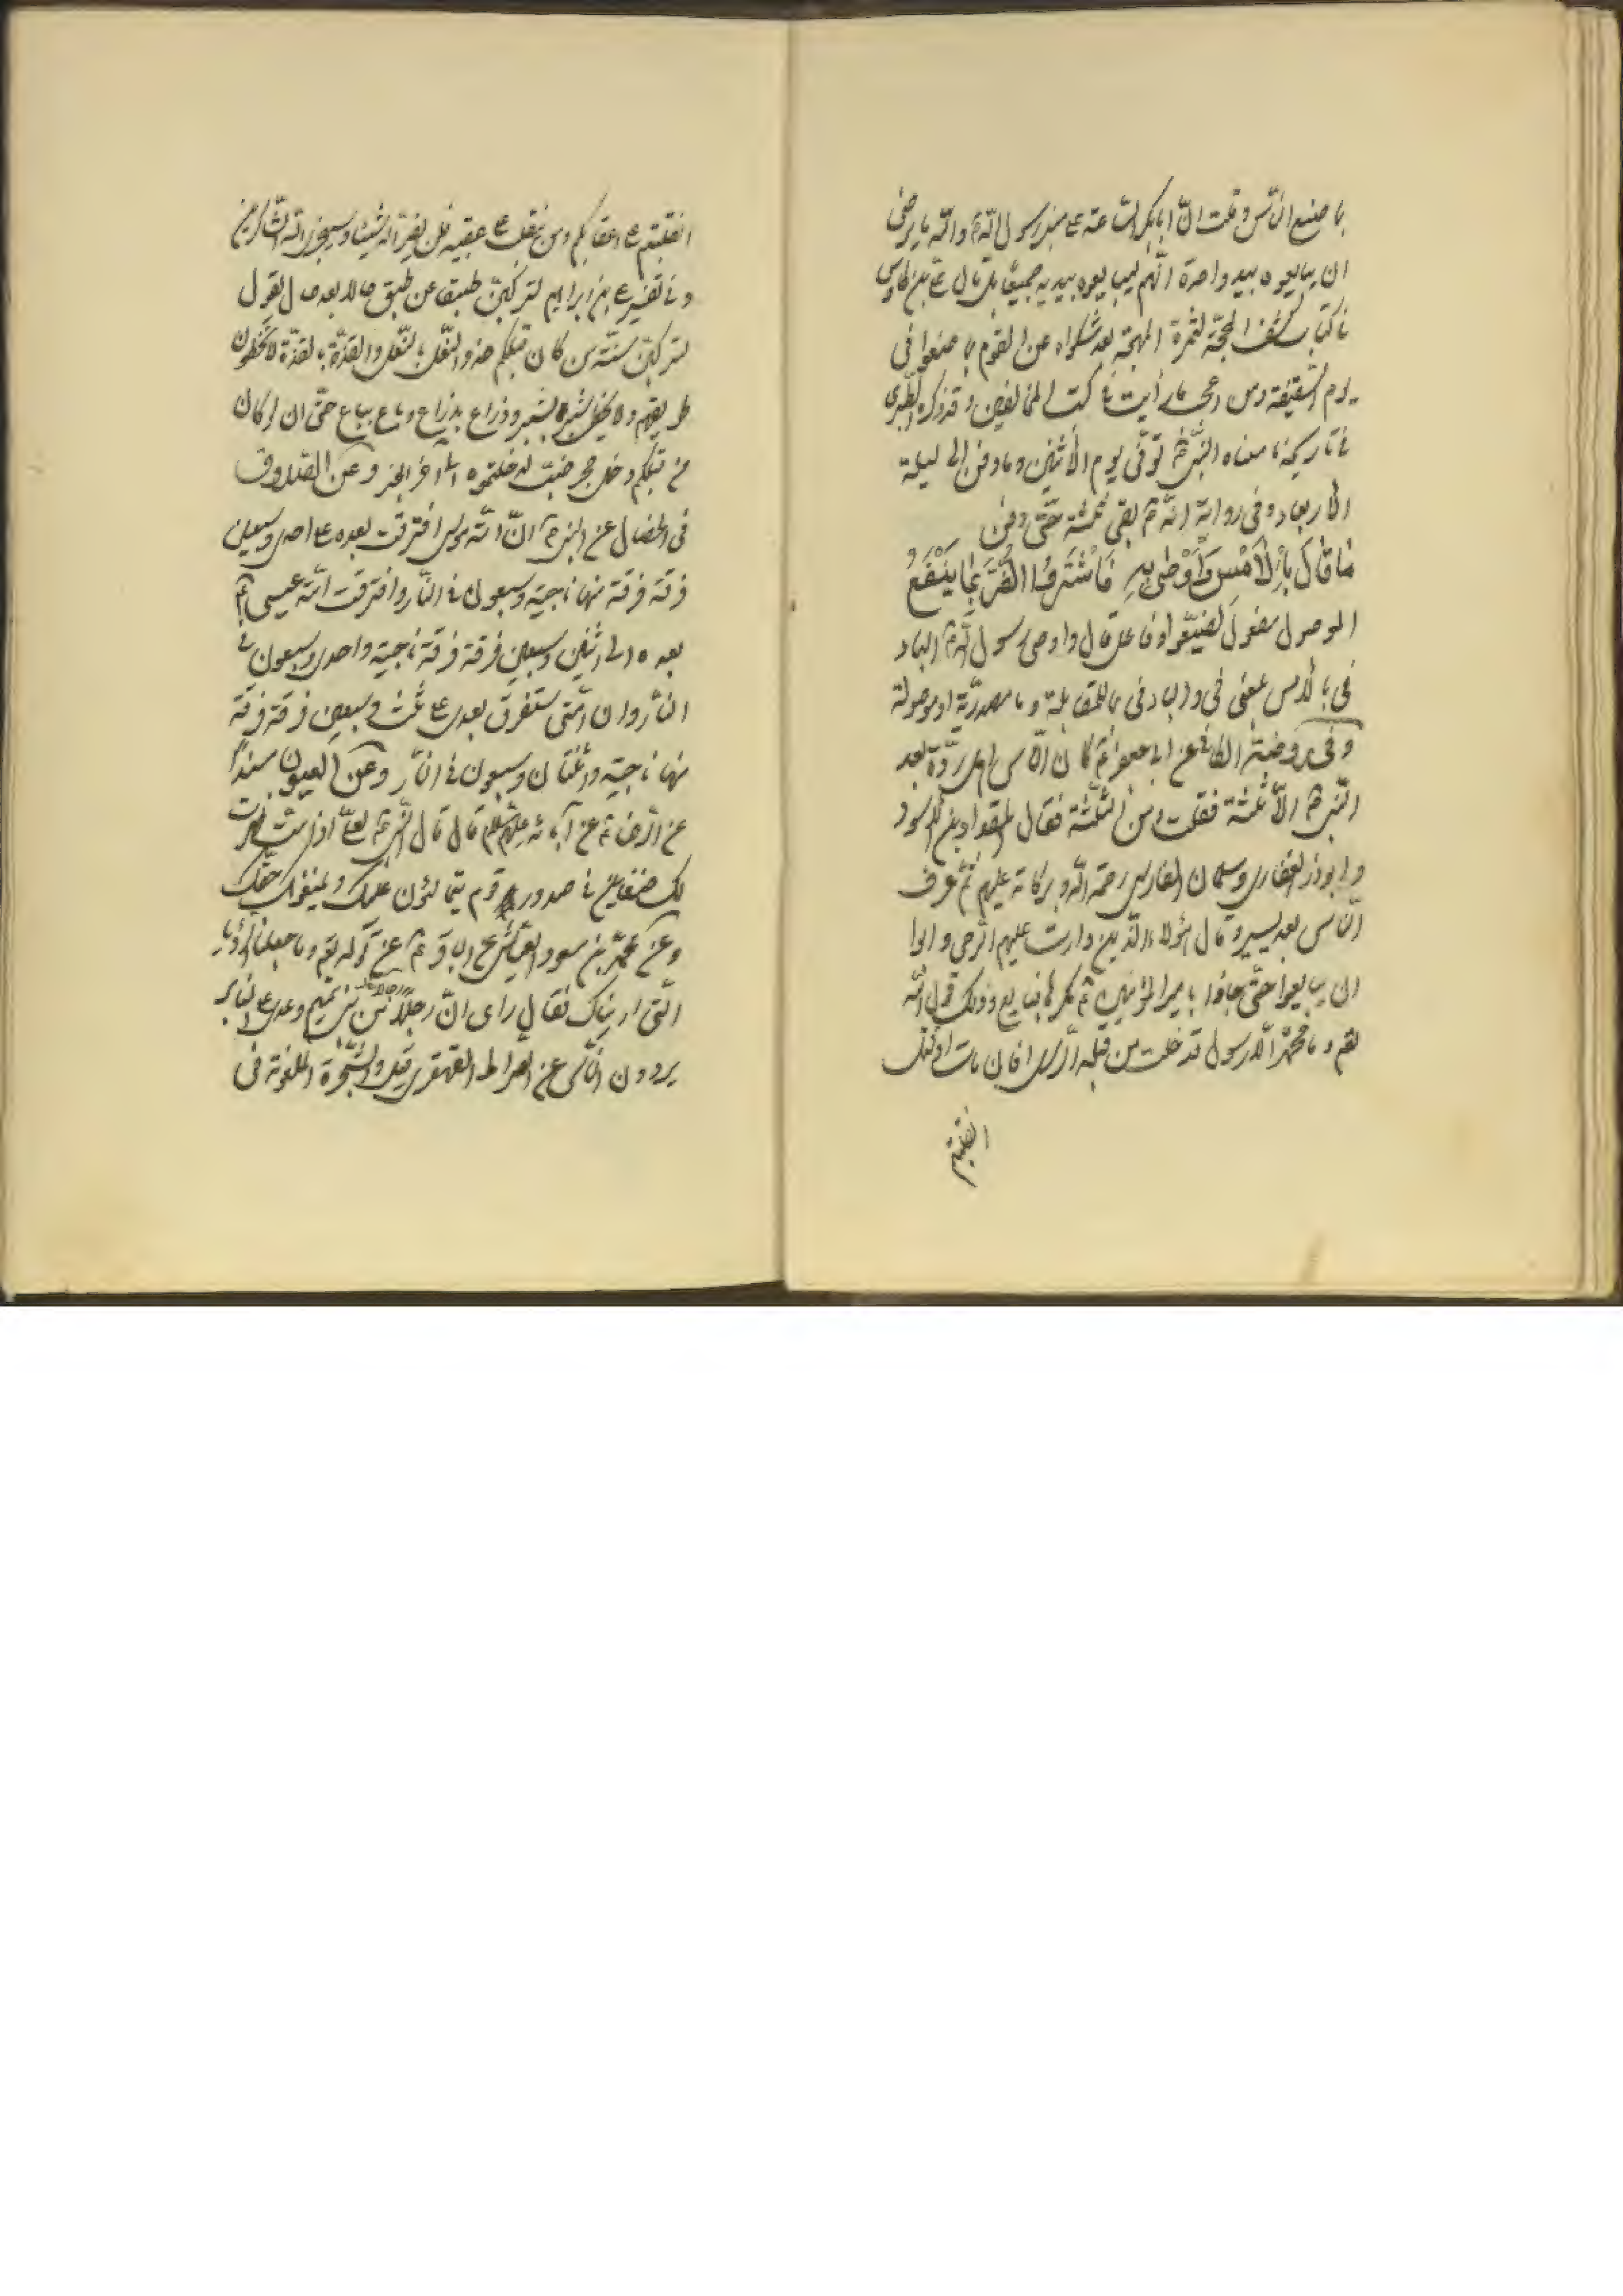 ما صنع الناس وقلت انّ ابابكر الساعة على منبر رسول الله ص والله ما يرضى
ان يبايعوه بيد واحدة انّهم ليبايعونه بيديه جميعًا قال على بن طاوس
فى كتاب كشف المحجّة لثمرة المهجة بعد شكواه من القوم ما صنعوا فى
يوم السّقيفة ومن اعجب ما رأيت فى كتب المخالفين وقد ذكره الطّبرى
فى تاريخه ما معناه النّبى ص توفّى يوم الاثنين وما دفن الى ليلة
الاربعاء وفى رواية انّه ص بقى ثلثة حتّى دفن
مَا قَالَ بِالْأَمْسِ وَأَوْصَى بِهِ فَاشْتَرَوُا الضُّرَّ بِمَا يَنْفَعُ
الموصول مفعول لضيّعوا وفاعل قال واوصى رسول الله ص الباء
فى بالامس بمعنى فى والباء فى بما للمقابلة وما مصدريّة او موصولة
وفى روضة الكافى عن ابى جعفر ع كان النّاس اهل ردّة بعد
النّبى ص الّا ثلثة فقلت ومن الثّلثة فقال المقداد بن الاسود
وابوذر الغفارى وسلمان الفارسى رحمة الله وبركاته عليهم ثمّ عرف
النّاس بعد يسير وقال هؤلاء الّذين دارت عليهم الرّحى وابوا
ان يبايعوا حتّى جاؤا بامير المؤمنين ع مكرها فبايع وذلك قول الله
تعم وما محمّد الّا رسول قد خلت من قبله الرّسل افان مات او قتل
انقلبتم
انقلبتم على اعقابكم ومن ينقلب على عقبيه فلن يضرّ الله شيئا وسيجزى الله الشّاكرين
وفى تفسير على بن ابراهيم لتركبنّ طبقا عن طبق حالا بعد حال يقول
لتركبنّ سنّة من كان قبلكم حذو النّعل بالنّعل والقذّة بالقذّة لا تخطؤن
طريقهم ولا يخطى شبر بشبر وذراع بذراع وباع بباع حتّى ان لو كان
من قبلكم دخل جحر ضبّ لدخلتموه الى آخر الخبر وعن الصّدوق
فى الخصال عن النبى ص انّ امّة موسى افترقت بعده على احدى وسبعين
فرقة فرقة منها ناجية وسبعون فى النّار وافترقت امّة عيسى ع
بعده على اثنين وسبعين فرقة فرقة ناجية واحدى وسبعون فى
النّار وان امّتى ستفرق بعدى على ثلث وسبعين فرقة فرقة
منها ناجية واثنتان وسبعون فى النّار وعن العيون مسندًا
عن الرّضا ع عن آبائه عليهم السّلام قال قال النّبى ص لعلىّ اذا متّ ظهرت
لك ضغاين فى صدور قوم يتمالئون عليك ويمنعونك حقّك
وعن محمّد بن مسعود العيّاشى عن الباقر ع عن قوله تعم وما جعلنا الرّؤيا
الّتى اريناك فقال راى انّ رجالًا من بنى تيم وعدى على المنابر
يردون النّاس عن الصراط القهقرى قيل والشّجرة الملعونة فى